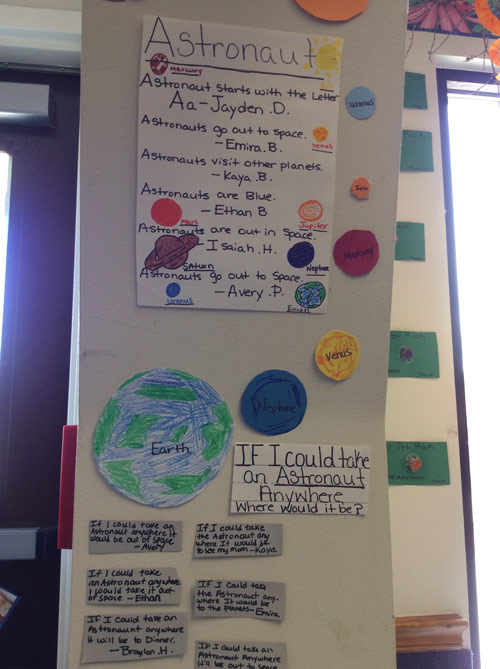 Astronaut
Mercury
Astronaut starts with the Letter
Aa-Jayden D.
Astronauts go out to space.
-Emira B.
venus
Astronauts visit other planets.
-Kaya B.
Astronauts are Blue.
-Ethan B
Mars
Jupiter
Astronauts are out in space.
-Isaiah H.
Saturn
Neptune
Astronauts go out to space.
-Avery P.
uranus
Earth
uranus
Mercury
Venus
Neptune
Earth
IF I could take
an Astronaut
Anywhere
Where would it be?
If I could take an
Astronaut anywhere it
would be out of space
-Avery
If I could take
the Astronaut any
where It would be
to see my mom-Kaya
If I could take
an Astronaut anywhere
I would take it out
of space -Ethan
If I could take
the Astronaut any-
where It would be
to the planets-Emira
If I could take an
Astronaunt anywhere
it will be to Dinner.
-Braylon .H.
If I could take an
Astronaut Anywhere
It'll be out to space